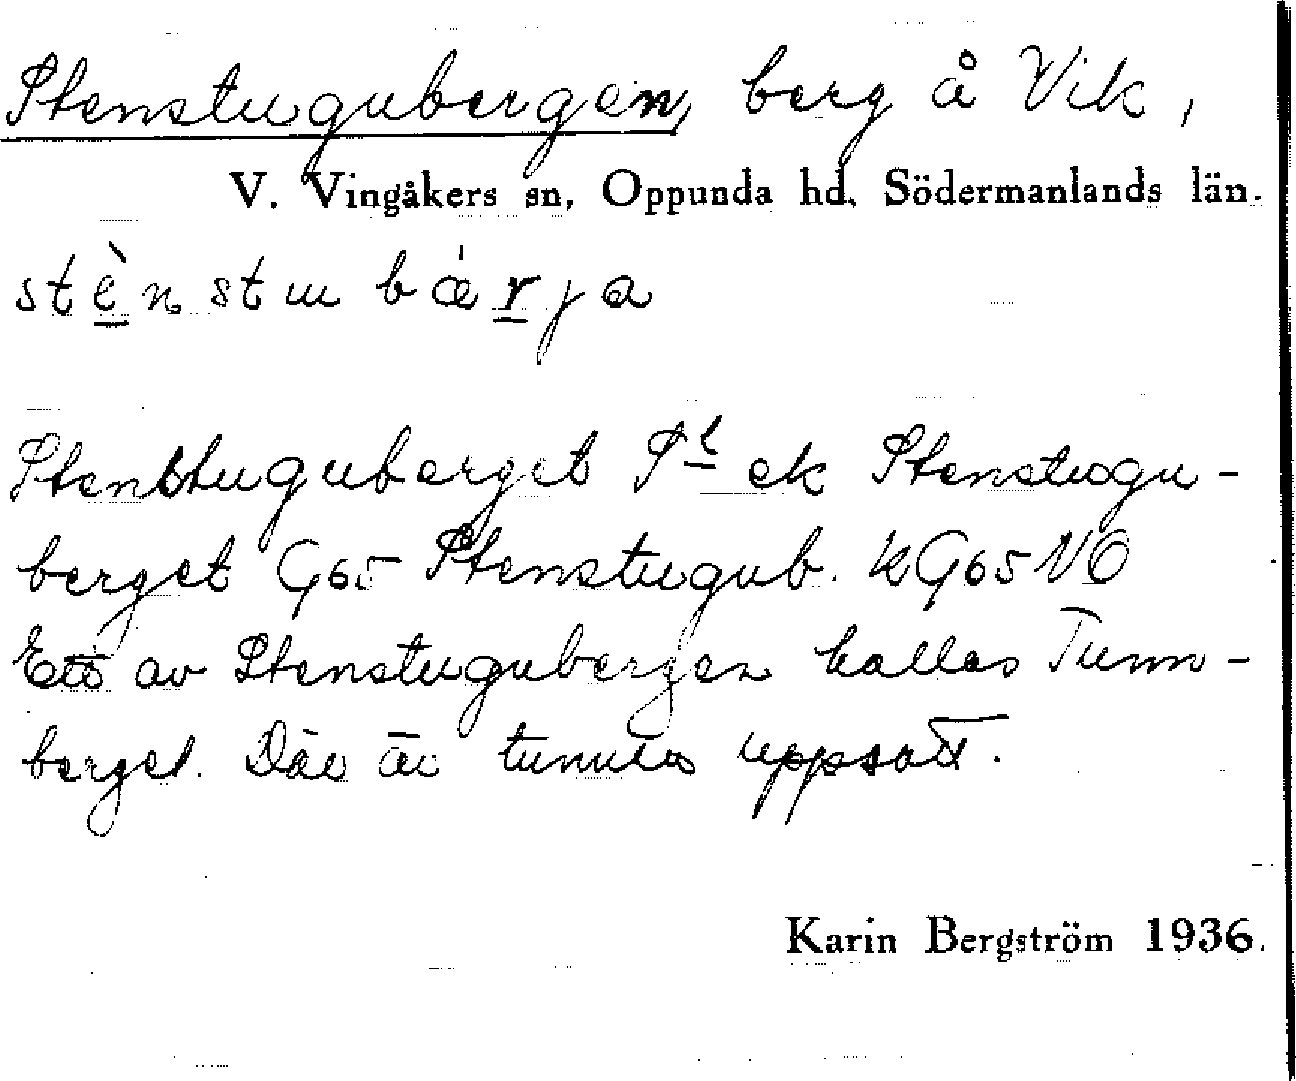 Stenstugubergen, berg å Vik,
V. Vingåkers sn, Oppunda hd, Södermanlands län.
stè̱nstu bæ̍ṟja
Stenstuguberget St ek Stenstugu-
berget G65 Stenstugub. kG65NO
Ett av Stenstugubergen kallas Tunn-
berget. Där är tunna uppsatt.
Karin Bergström 1936.